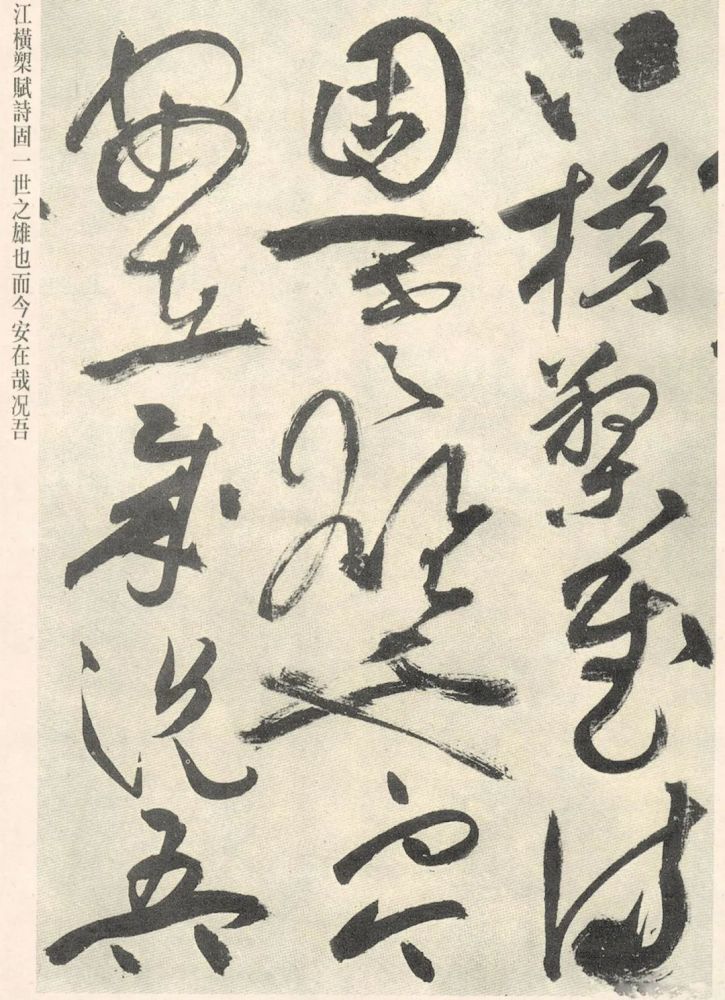 江橫槊賦詩
固一世之雄也而今
安在哉况吾
江橫槊賦詩固一世之雄也而今安在哉况吾